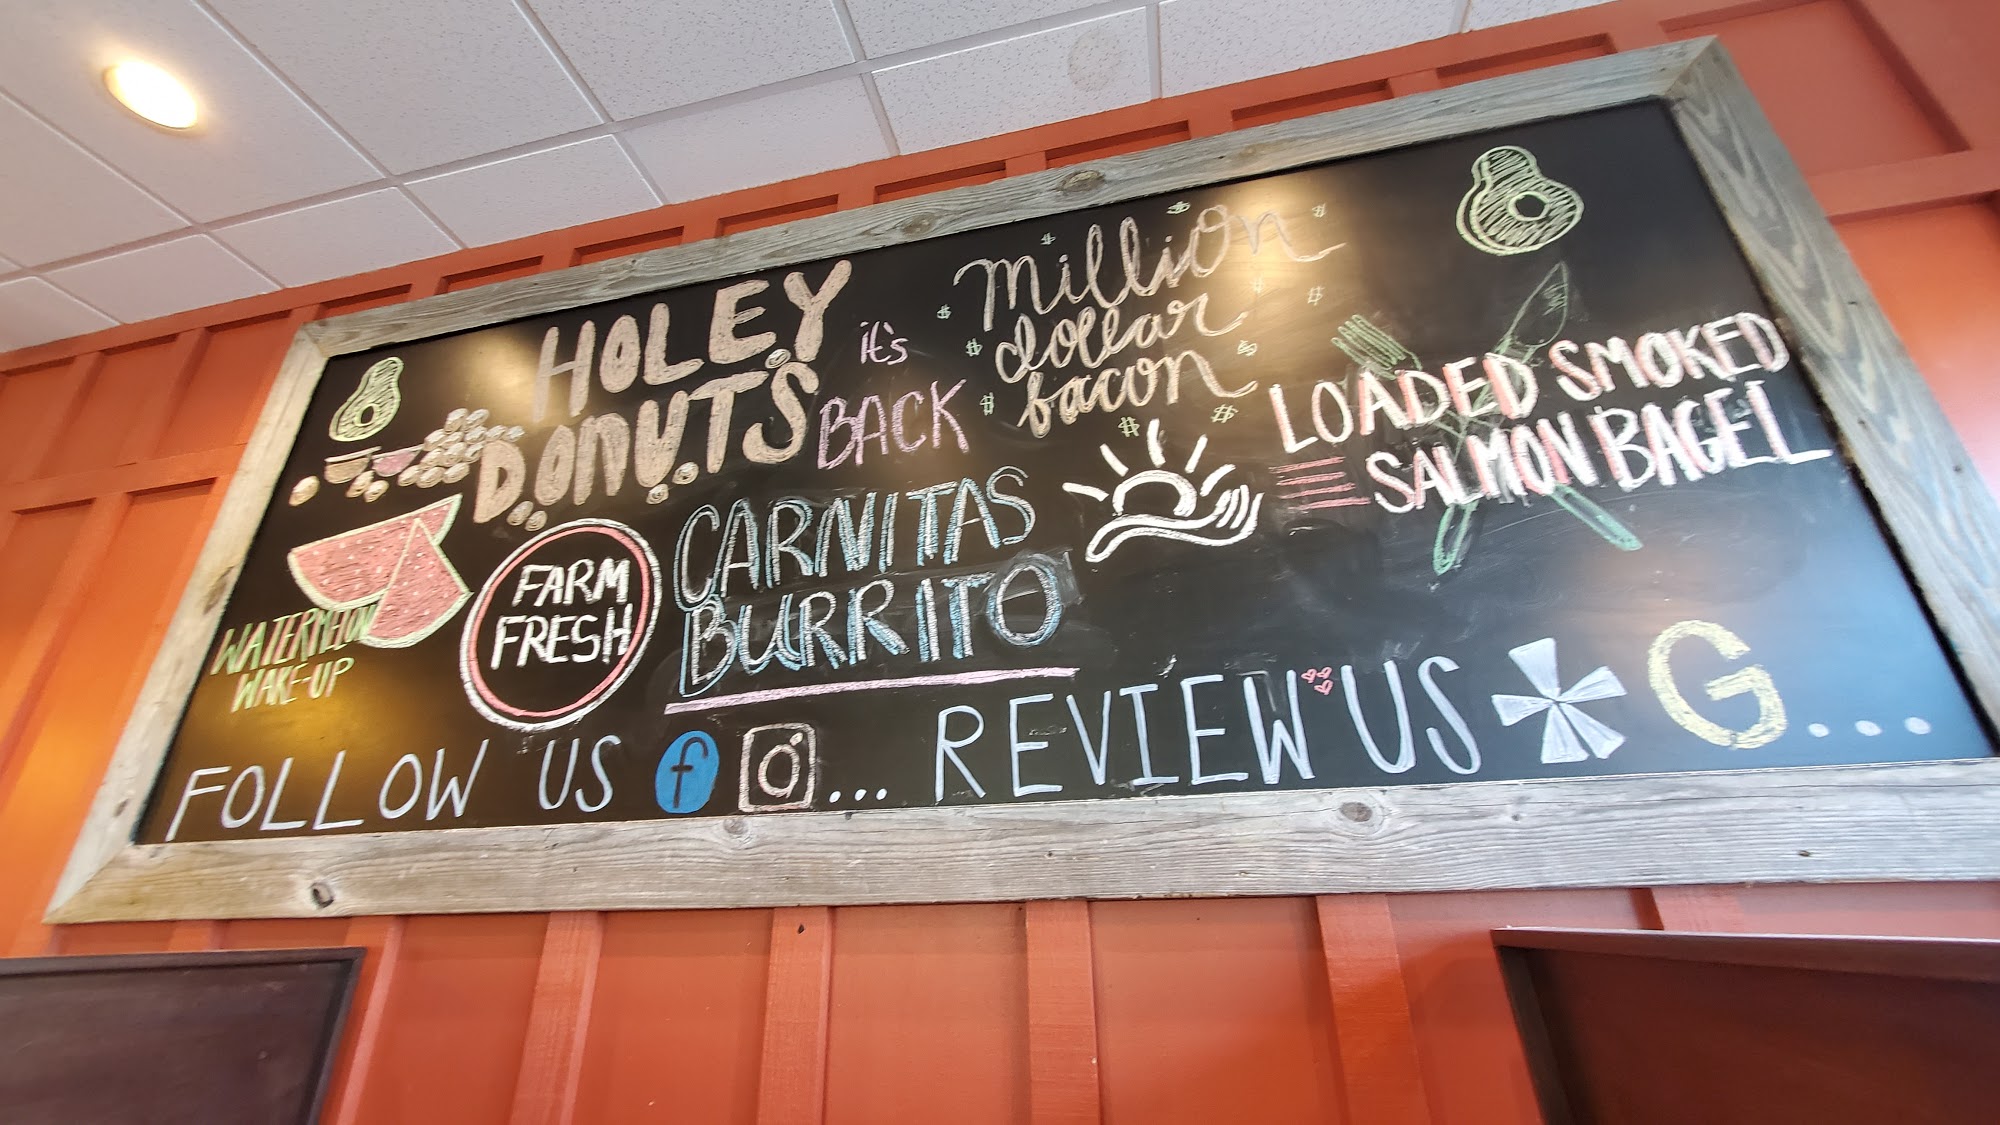 HOLEY
DONUTS
it's
BACK
million
dollar
bacon
LOADED SMOKED
SALMON BAGEL
WATERMELON
WAKE-UP
FARM
FRESH
CARNITAS
BURRITO
FOLLOW US f ... REVIEW US G....